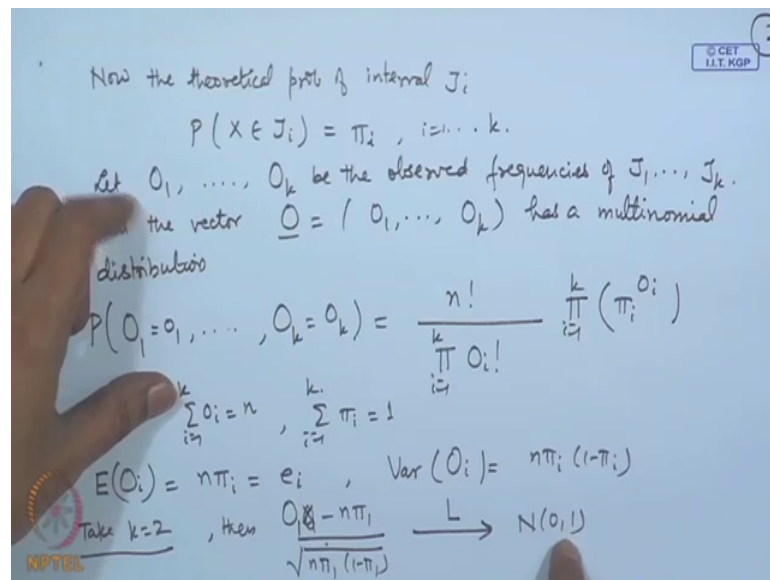 © CET
I.I.T. KGP
Now the theoretical prob of interval J_i
P(X ∈ J_i) = π_i , i=1...k.
Let O_1, ...., O_k be the observed frequencies of J_1..., J_k.
the vector O = (O_1, ..., O_k) has a multinomial
distribution
P(O_1=o_1, ....., O_k=o_k) = n! / ∏_{i=1}^{k} o_i! ∏_{i=1}^{k} (π_i^{o_i})
∑_{i=1}^{k} o_i = n , ∑_{i=1}^{k} π_i = 1
E(O_i) = nπ_i = e_i , Var(O_i) = nπ_i(1-π_i)
Take k=2 , then (O_1 - nπ_1) / √(nπ_1(1-π_1)) —L→ N(0,1)
NPTEL